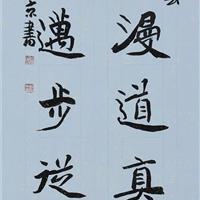 漫道真
邁步從
京書